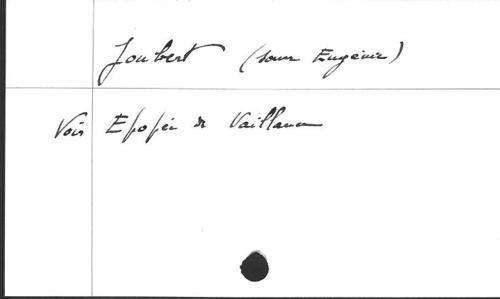 Joubert (sœur Eugénie)
Voir Epopée de Vaillance